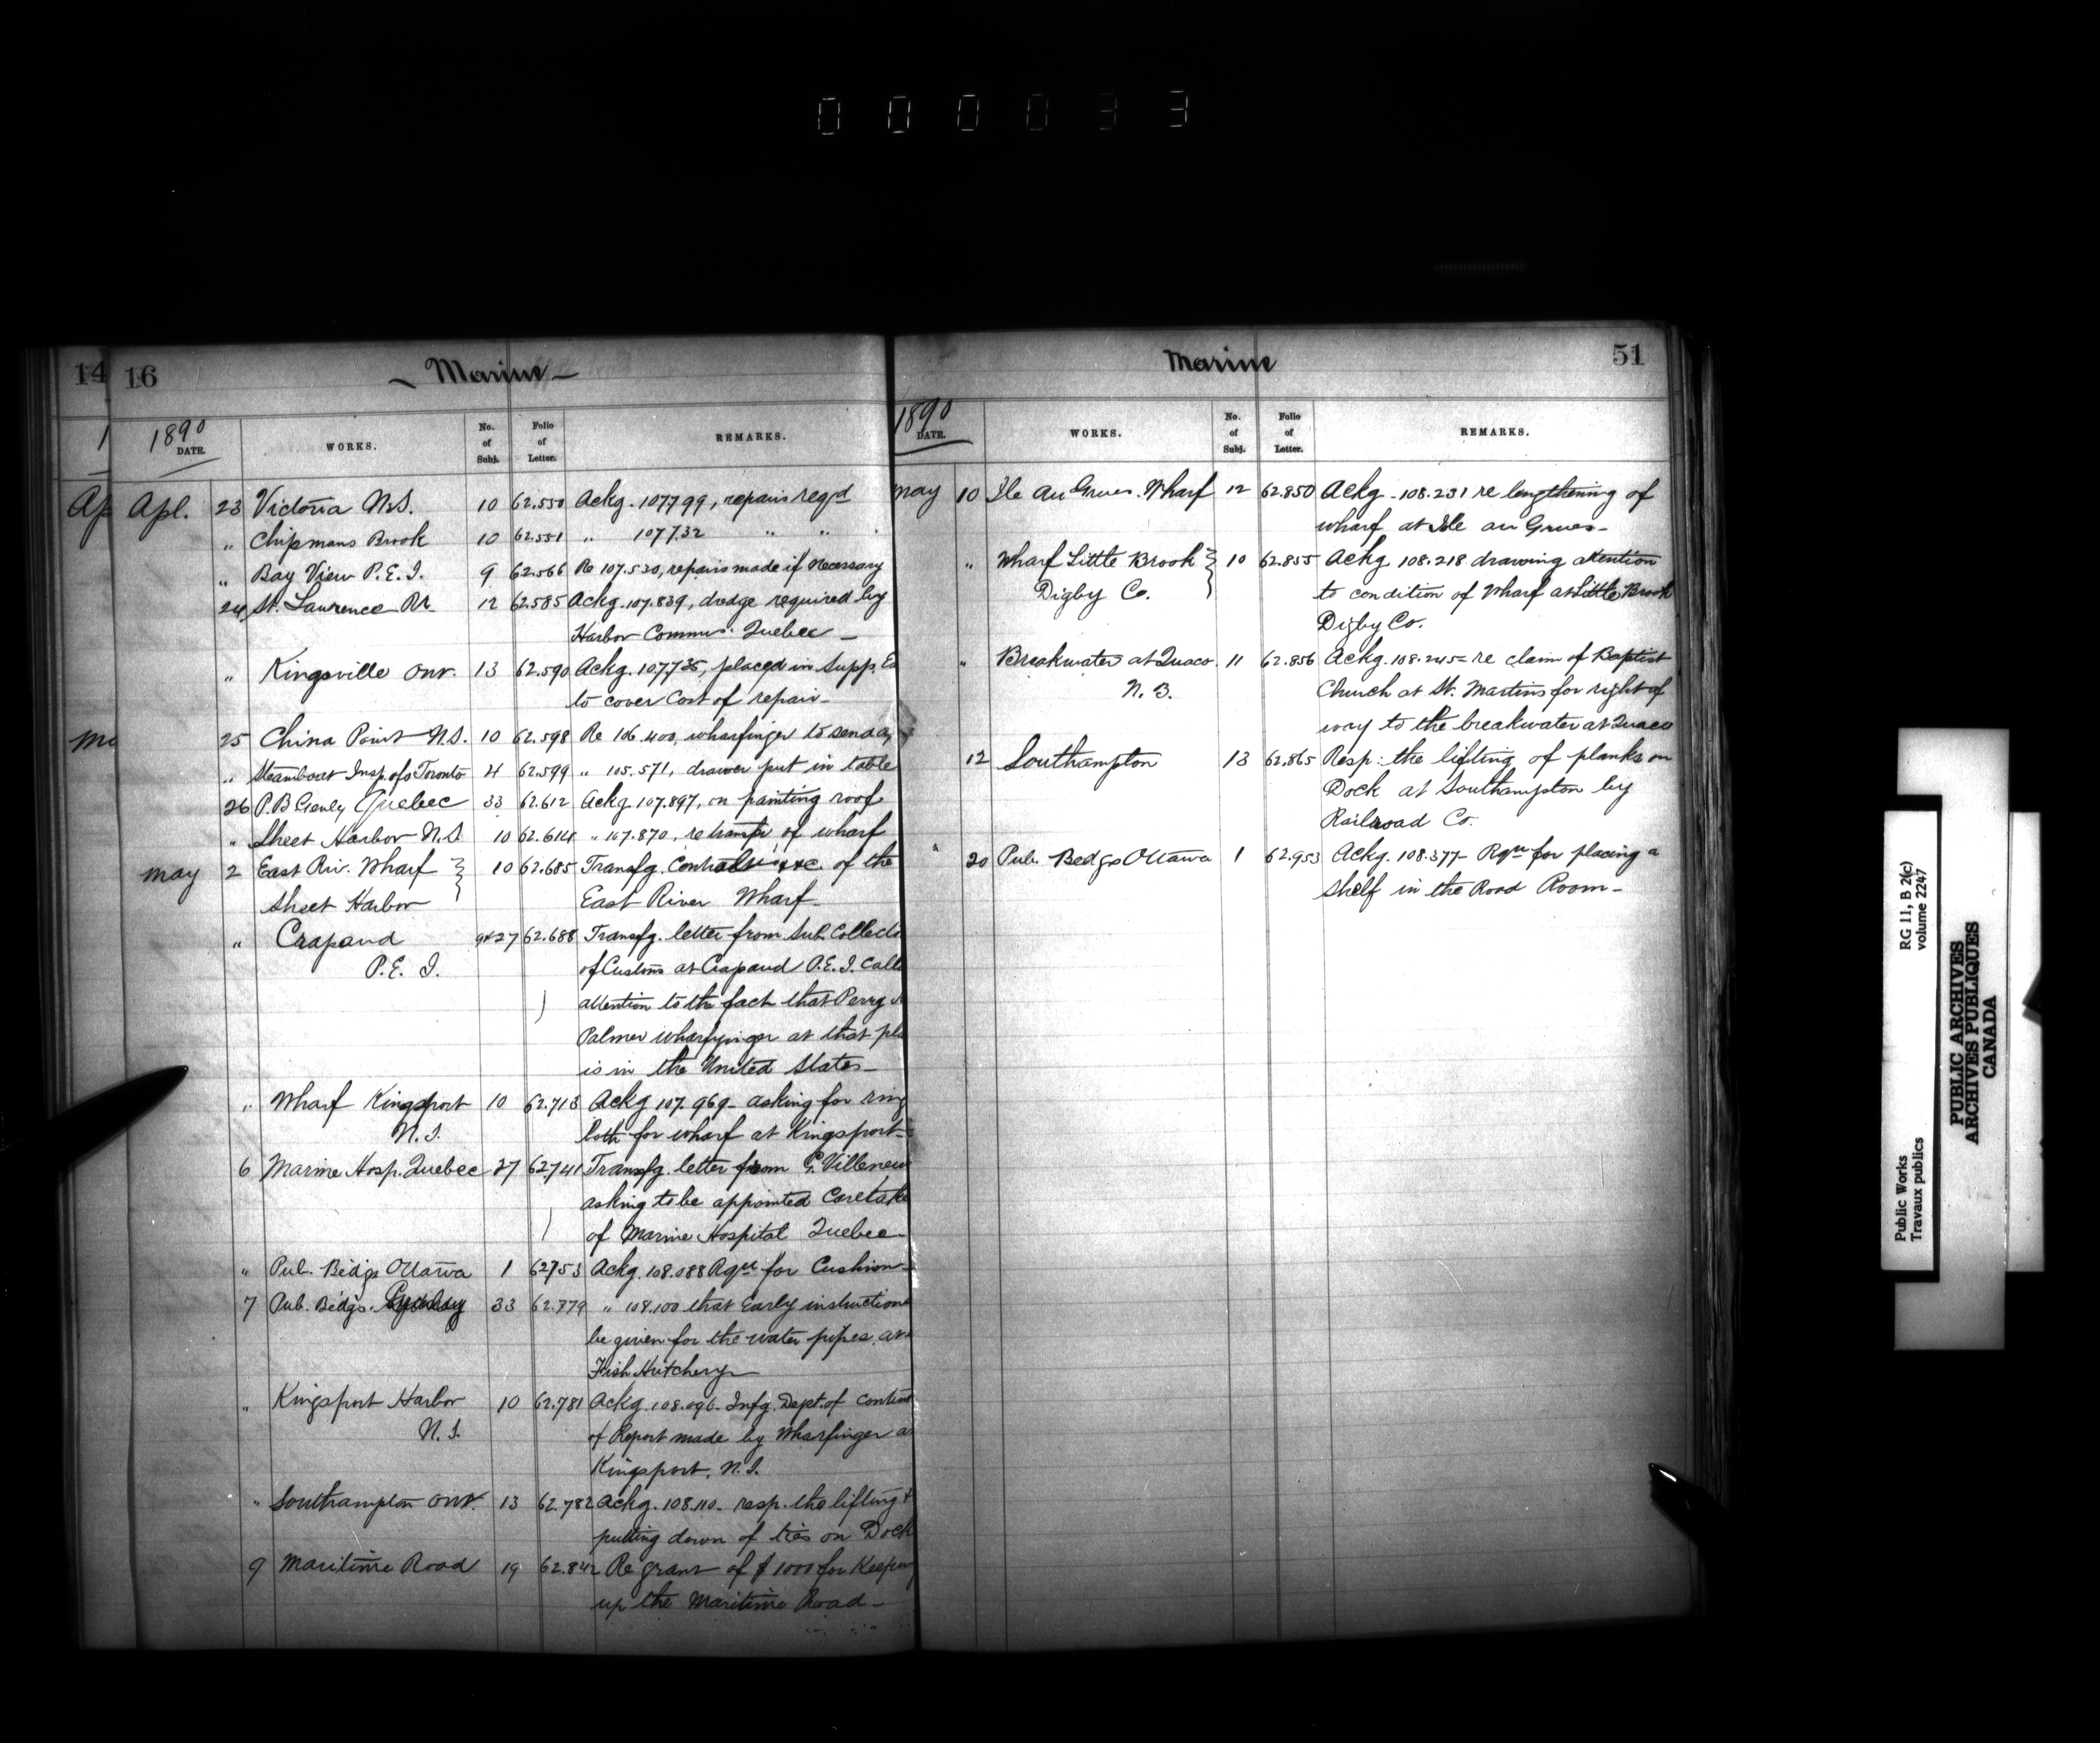 000033
14
1
Ap
16
Marine
1890
DATE.
WORKS.
No. of Subj.
Folio of Letter.
REMARKS.
Apl. 23 Victoria N.S. 10 62.550 Ackg. 107799, repairs reqd
" Chipmans Brook 10 62.551 " 107732 " "
" Bay View P.E.I. 9 62.566 Re 107.530, repairs made if necessary
24 St. Lawrence Rr. 12 62.585 Ackg. 107.839, dredge required by
Harbor Commrs. Quebec
" Kingsville Ont. 13 62.590 Ackg. 107.735, placed in Supp. Es
to cover cost of repair
25 China Point N.S. 10 62.598 Re 106.400, wharfinger to send
" Steamboat Insp. ofs Toronto 4 62.599 " 105.571, drawer put in table
26 P.B. Genly Quebec 33 62.612 Ackg. 107.897, on painting roof
" Sheet Harbor N.S 10 62.614 " 107.870, re transfr of wharf
May 2 East Riv. Wharf 10 62.685 Transfg. Contracts &c of the
Sheet Harbor East River Wharf
" Crapaud 9&27 62.688 Transfg. letter from Sub Collecto
P.E.I. of Customs at Crapaud P.E.I. Call
attention to the fact that Perry
Palmer wharfinger at that pla
is in the United States
" Wharf Kingsport 10 62.713 Ackg 107.969 - asking for ring
N.S. bolts for wharf at Kingsport
6 Marine Hosp. Quebec 27 62.741 Transfg. letter from G. Villeneu
asking to be appointed Caretake
of Marine Hospital Quebec
" Pub. Bldgs Ottawa 1 62753 Ackg. 108.088 Rqn for Cushion
7 Pub. Bldgs. Sydney 33 62.779 " 108.100 that Early instructions
be given for the water pipes at
Fish Hatchery
" Kingsport Harbor 10 62.781 Ackg. 108.096 - Infg. Dept. of content
N.S. of Report made by Wharfinger a
Kingsport, N.S.
" Southampton Ont. 13 62.782 Ackg. 108.110 - resp. the lifting &
putting down of ties on Dock
9 Maritime Road 19 62.842 Re grant of $1000 for Keeping
up the Maritime Road
Marine
51
1890
DATE.
WORKS.
No. of Subj.
Folio of Letter.
REMARKS.
May 10 Ile Au Grues. Wharf 12 62.850 Ackg - 108.231 re lengthening of
wharf at Isle au Grues
" Wharf Little Brook 10 62.855 Ackg 108.218 drawing attention
Digby Co. to condition of Wharf at Little Brook
Digby Co.
" Breakwater at Quaco 11 62.856 Ackg. 108.245 - re claim of Baptist
N.B. Church at St. Martins for right of
way to the breakwater at Quaco
12 Southampton 13 62.865 Resp: the lifting of planks on
Dock at Southampton by
Railroad Co.
" 20 Pub. Bldgs Ottawa 1 62.953 Ackg. 108.377 - Rqn for placing a
Shelf in the Road Room
RG 11, B 2(c)
volume 2247
Public Works
Travaux publics
PUBLIC ARCHIVES
ARCHIVES PUBLIQUES
CANADA